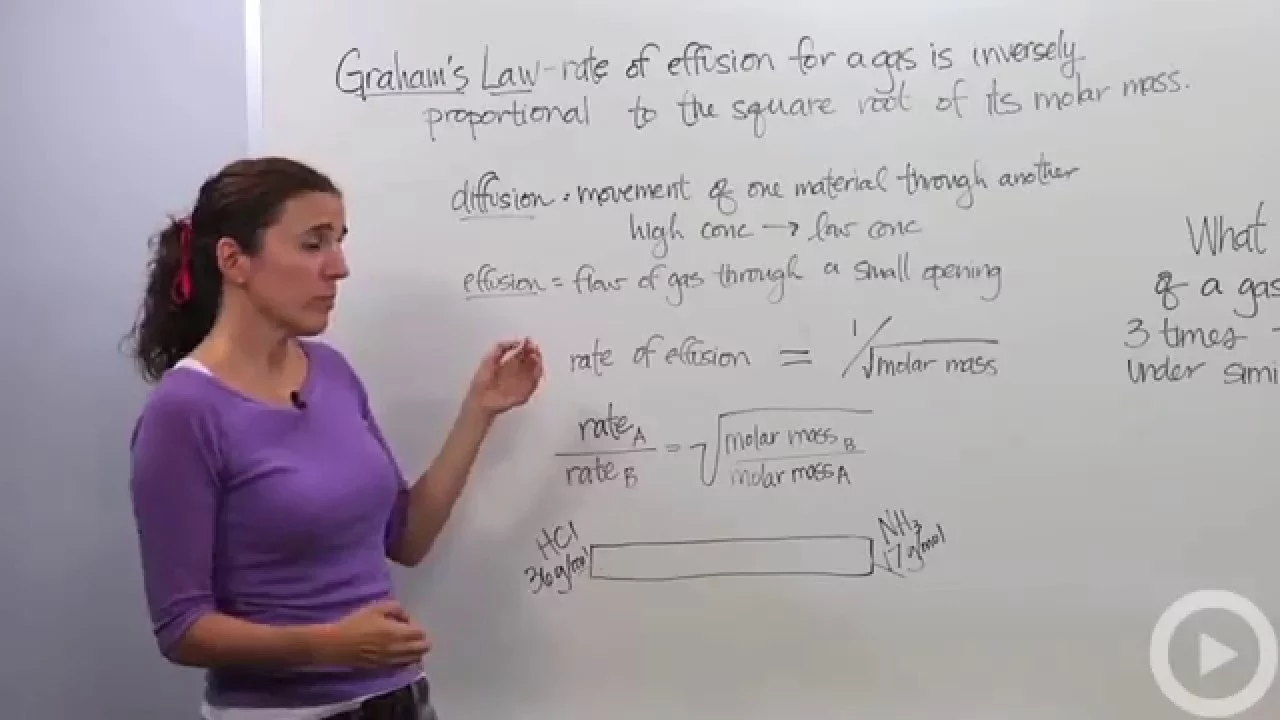 Graham's Law - rate of effusion for a gas is inversely
proportional to the square root of its molar mass.
diffusion · movement of one material through another
high conc → low conc
effusion = flow of gas through a small opening
rate of effusion = 1/√molar mass
rate A / rate B = √molar mass B / molar mass A
HCl
36g/mol
NH₃
17g/mol
What
of a gas
3 times
under simi